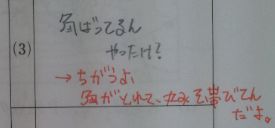 角ばってるん
(3)
やったけ?
→ちがうよ、
角がとれて、丸みを帯びてん
だよ。